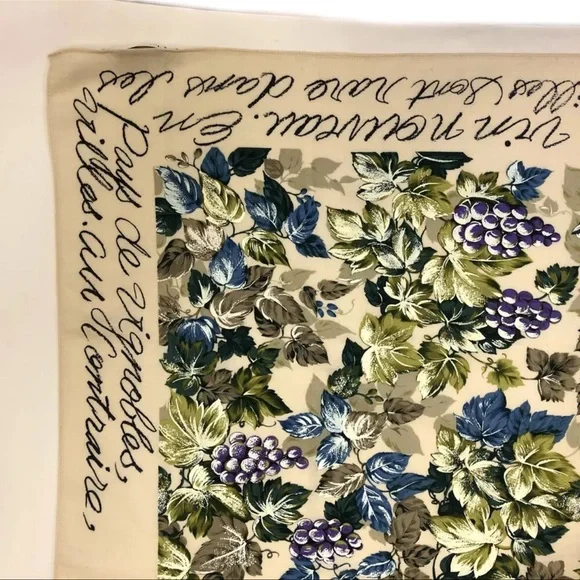 vin nouveau. En
sont rare dans les
Pays de Vignobles,
villes. au Contraire,